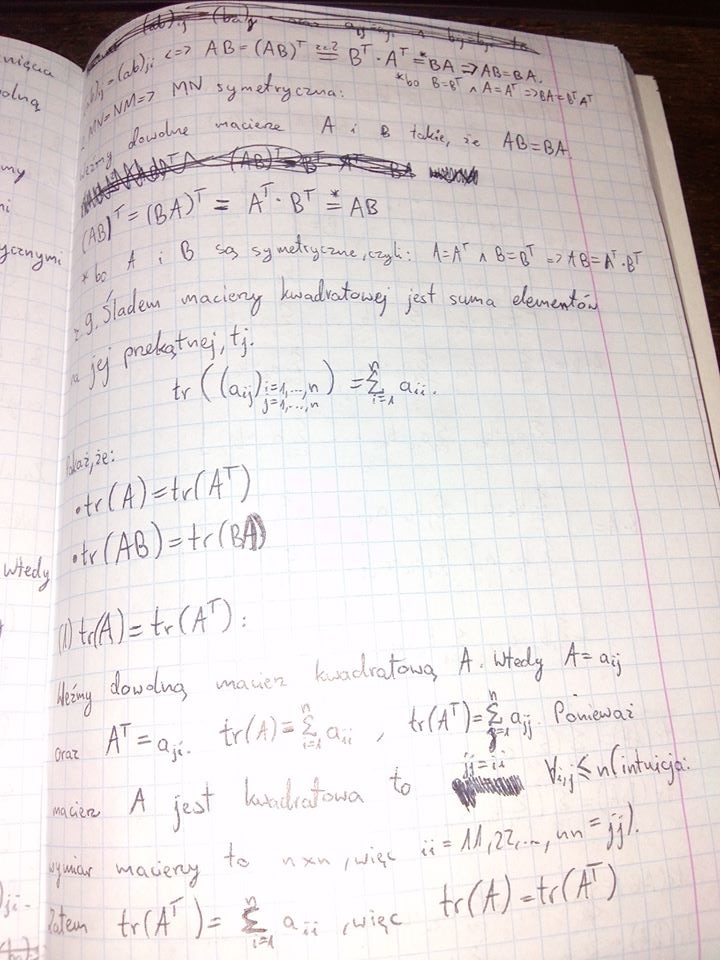 (ab)ij = (ab)ji <=> AB = (AB)^T = B^T · A^T =* BA => AB = BA.
* bo B = B^T ∧ A = A^T => BA = B^T A^T
MN = NM => MN symetryczna:
Weźmy dowolne macierze A i B takie, że AB = BA.
(AB)^T = (BA)^T = A^T · B^T =* AB
* bo A i B są symetryczne, czyli: A = A^T ∧ B = B^T => AB = A^T · B^T
z. 9. Śladem macierzy kwadratowej jest suma elementów
na jej przekątnej, tj.
tr((aij) i=1,...,n j=1,...,n) = Σ i=1 n aii.
Pokaż, że:
• tr(A) = tr(A^T)
• tr(AB) = tr(BA)
(1) tr(A) = tr(A^T):
Weźmy dowolną macierz kwadratową A. Wtedy A = aij
oraz A^T = aji. tr(A) = Σ i=1 n aii, tr(A^T) = Σ j=1 n ajj. Ponieważ
macierz A jest kwadratowa to jj = ii ∀i,j ≤ n (intuicja:
wymiar macierzy to n×n, więc ii = 11, 22, ..., nn = jj).
Zatem tr(A^T) = Σ i=1 n aii, więc tr(A) = tr(A^T)
wtedy